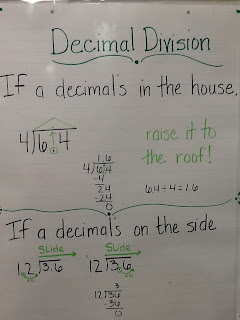 Decimal Division
If a decimals in the house,
4)6.4
raise it to
the roof!
1.6
4)6.4
-4
24
-24
0
6.4÷4=1.6
If a decimals on the side
Slide Slide
1.2)3.6 12)3.6
3
12)36
-36
0